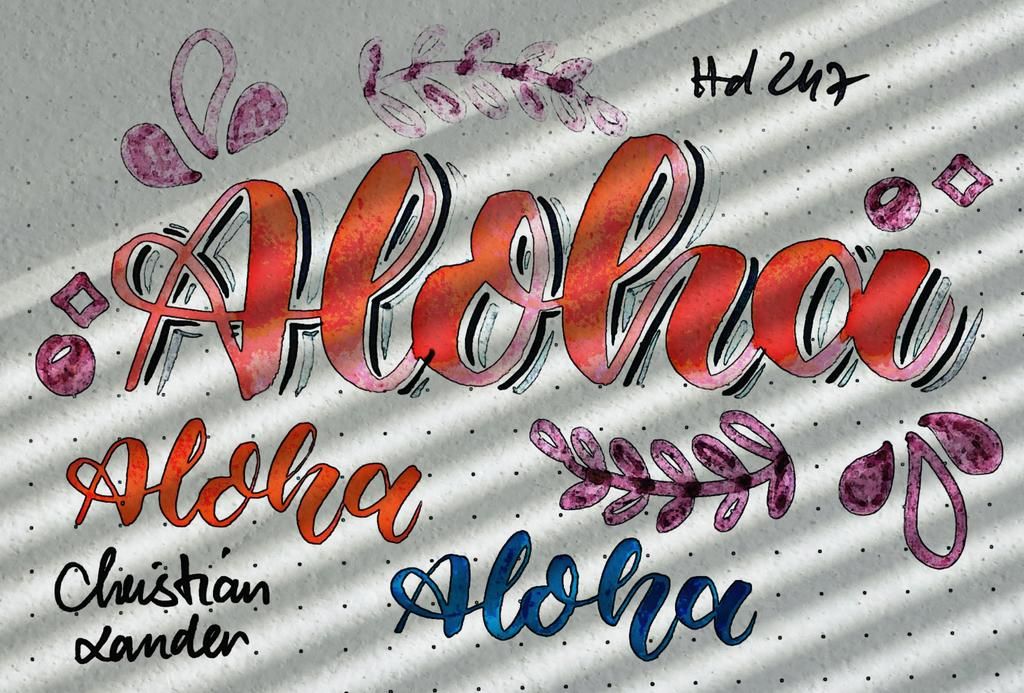 Hd 247
Aloha
Aloha
Aloha
Christian
Lander